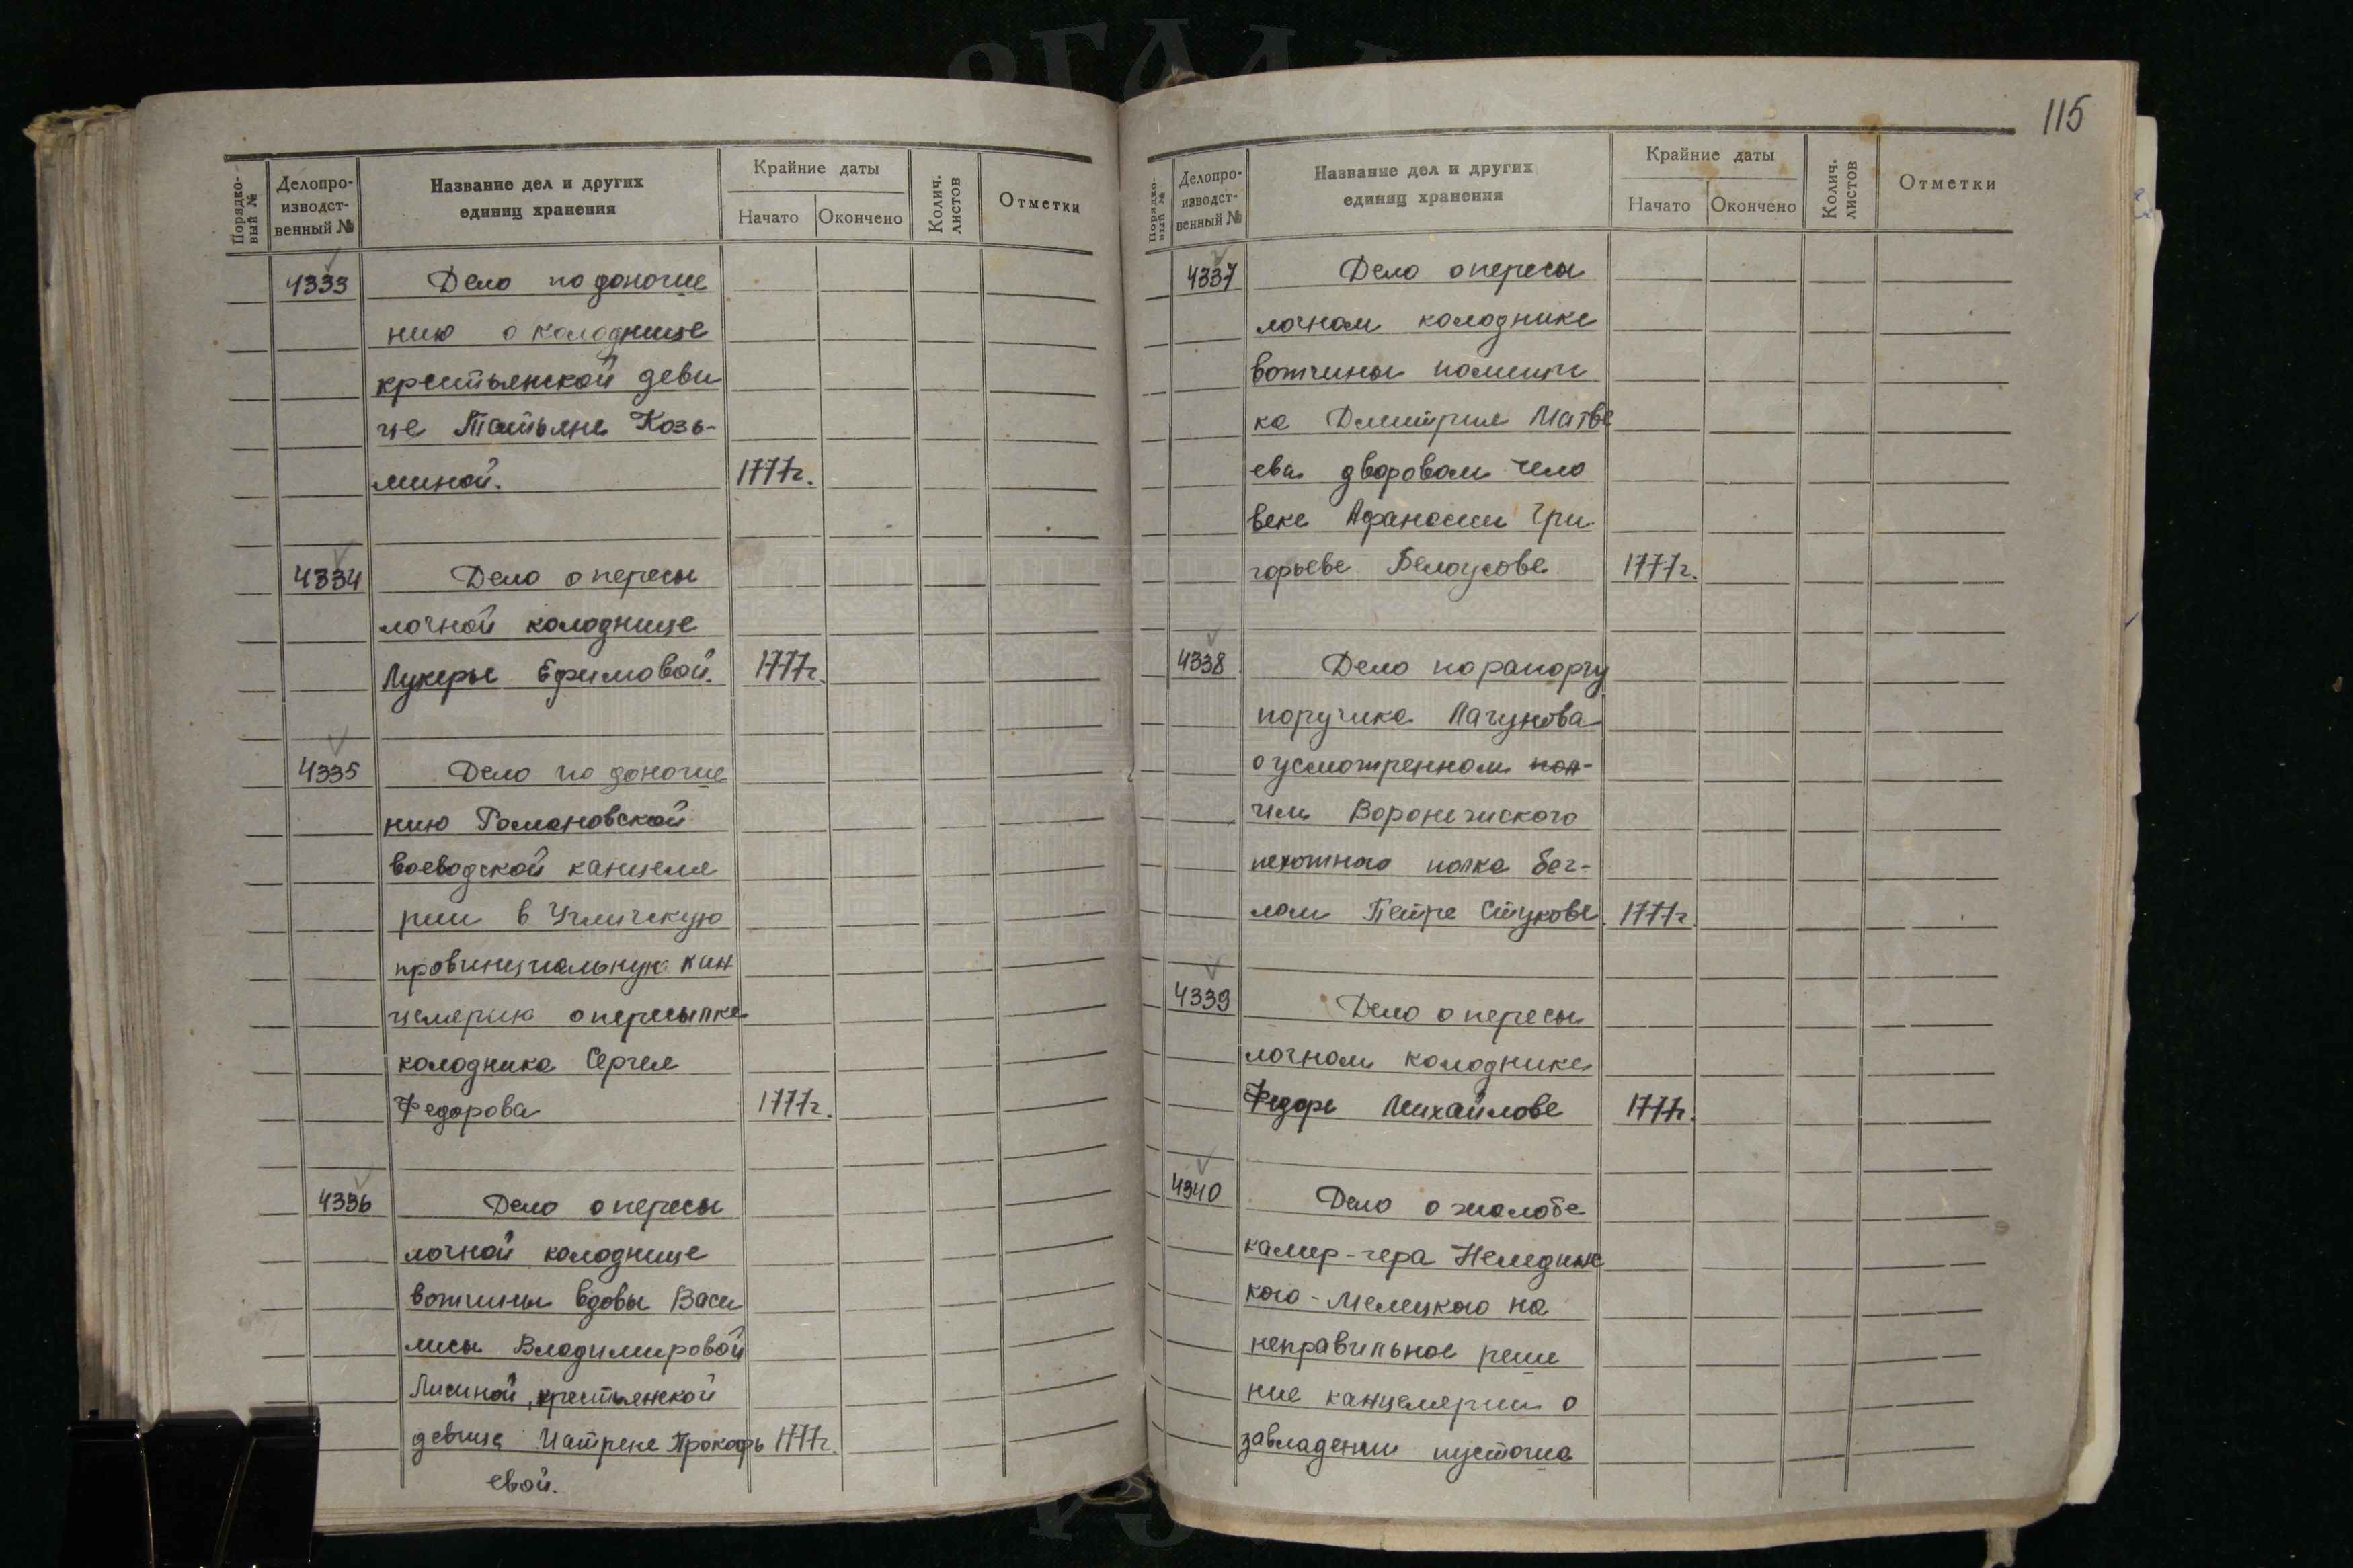 РГАДА
115
Порядко-
вый №
Делопро-
изводст-
венный №
Название дел и других
единиц хранения
Крайние даты
Начато
Окончено
Колич.
листов
Отметки
4333 Дело по доноше
нию о колоднице
крестьянской деви
це Татьяне Козь-
миной. 1777г.
4334 Дело о пересы
лочной колоднице
Лукерье Ефимовой. 1777г.
4335 Дело по доноше
нию Романовской
воеводской канцеля
рии в Угличскую
провинциальную кан
целярию о пересылке
колодника Сергея
Федорова 1777г.
4336 Дело о пересы
лочной колоднице
вотчины вдовы Васи
лисы Владимировой
Лисиной, крестьянской
девице Матрене Прокофь 1777г.
евой.
Порядко-
вый №
Делопро-
изводст-
венный №
Название дел и других
единиц хранения
Крайние даты
Начато
Окончено
Колич.
листов
Отметки
4337 Дело о пересы
лочном колоднике
вотчины помещи
ка Дмитрия Матве
ева дворовом чело
веке Афанасии Гри
горьеве Белоусове 1777г.
4338 Дело по рапорту
поручика Лагунова
о усмотренном
им Воронежского
пехотного полка бег-
лом Петре Стукове. 1777г.
4339 Дело о пересы
лочном колоднике
Федоре Михайлове 1777г.
4340 Дело о жалобе
камер-гера Нелединс
кого-Мелецкого на
неправильное реше
ние канцелярии о
завладении пустоша